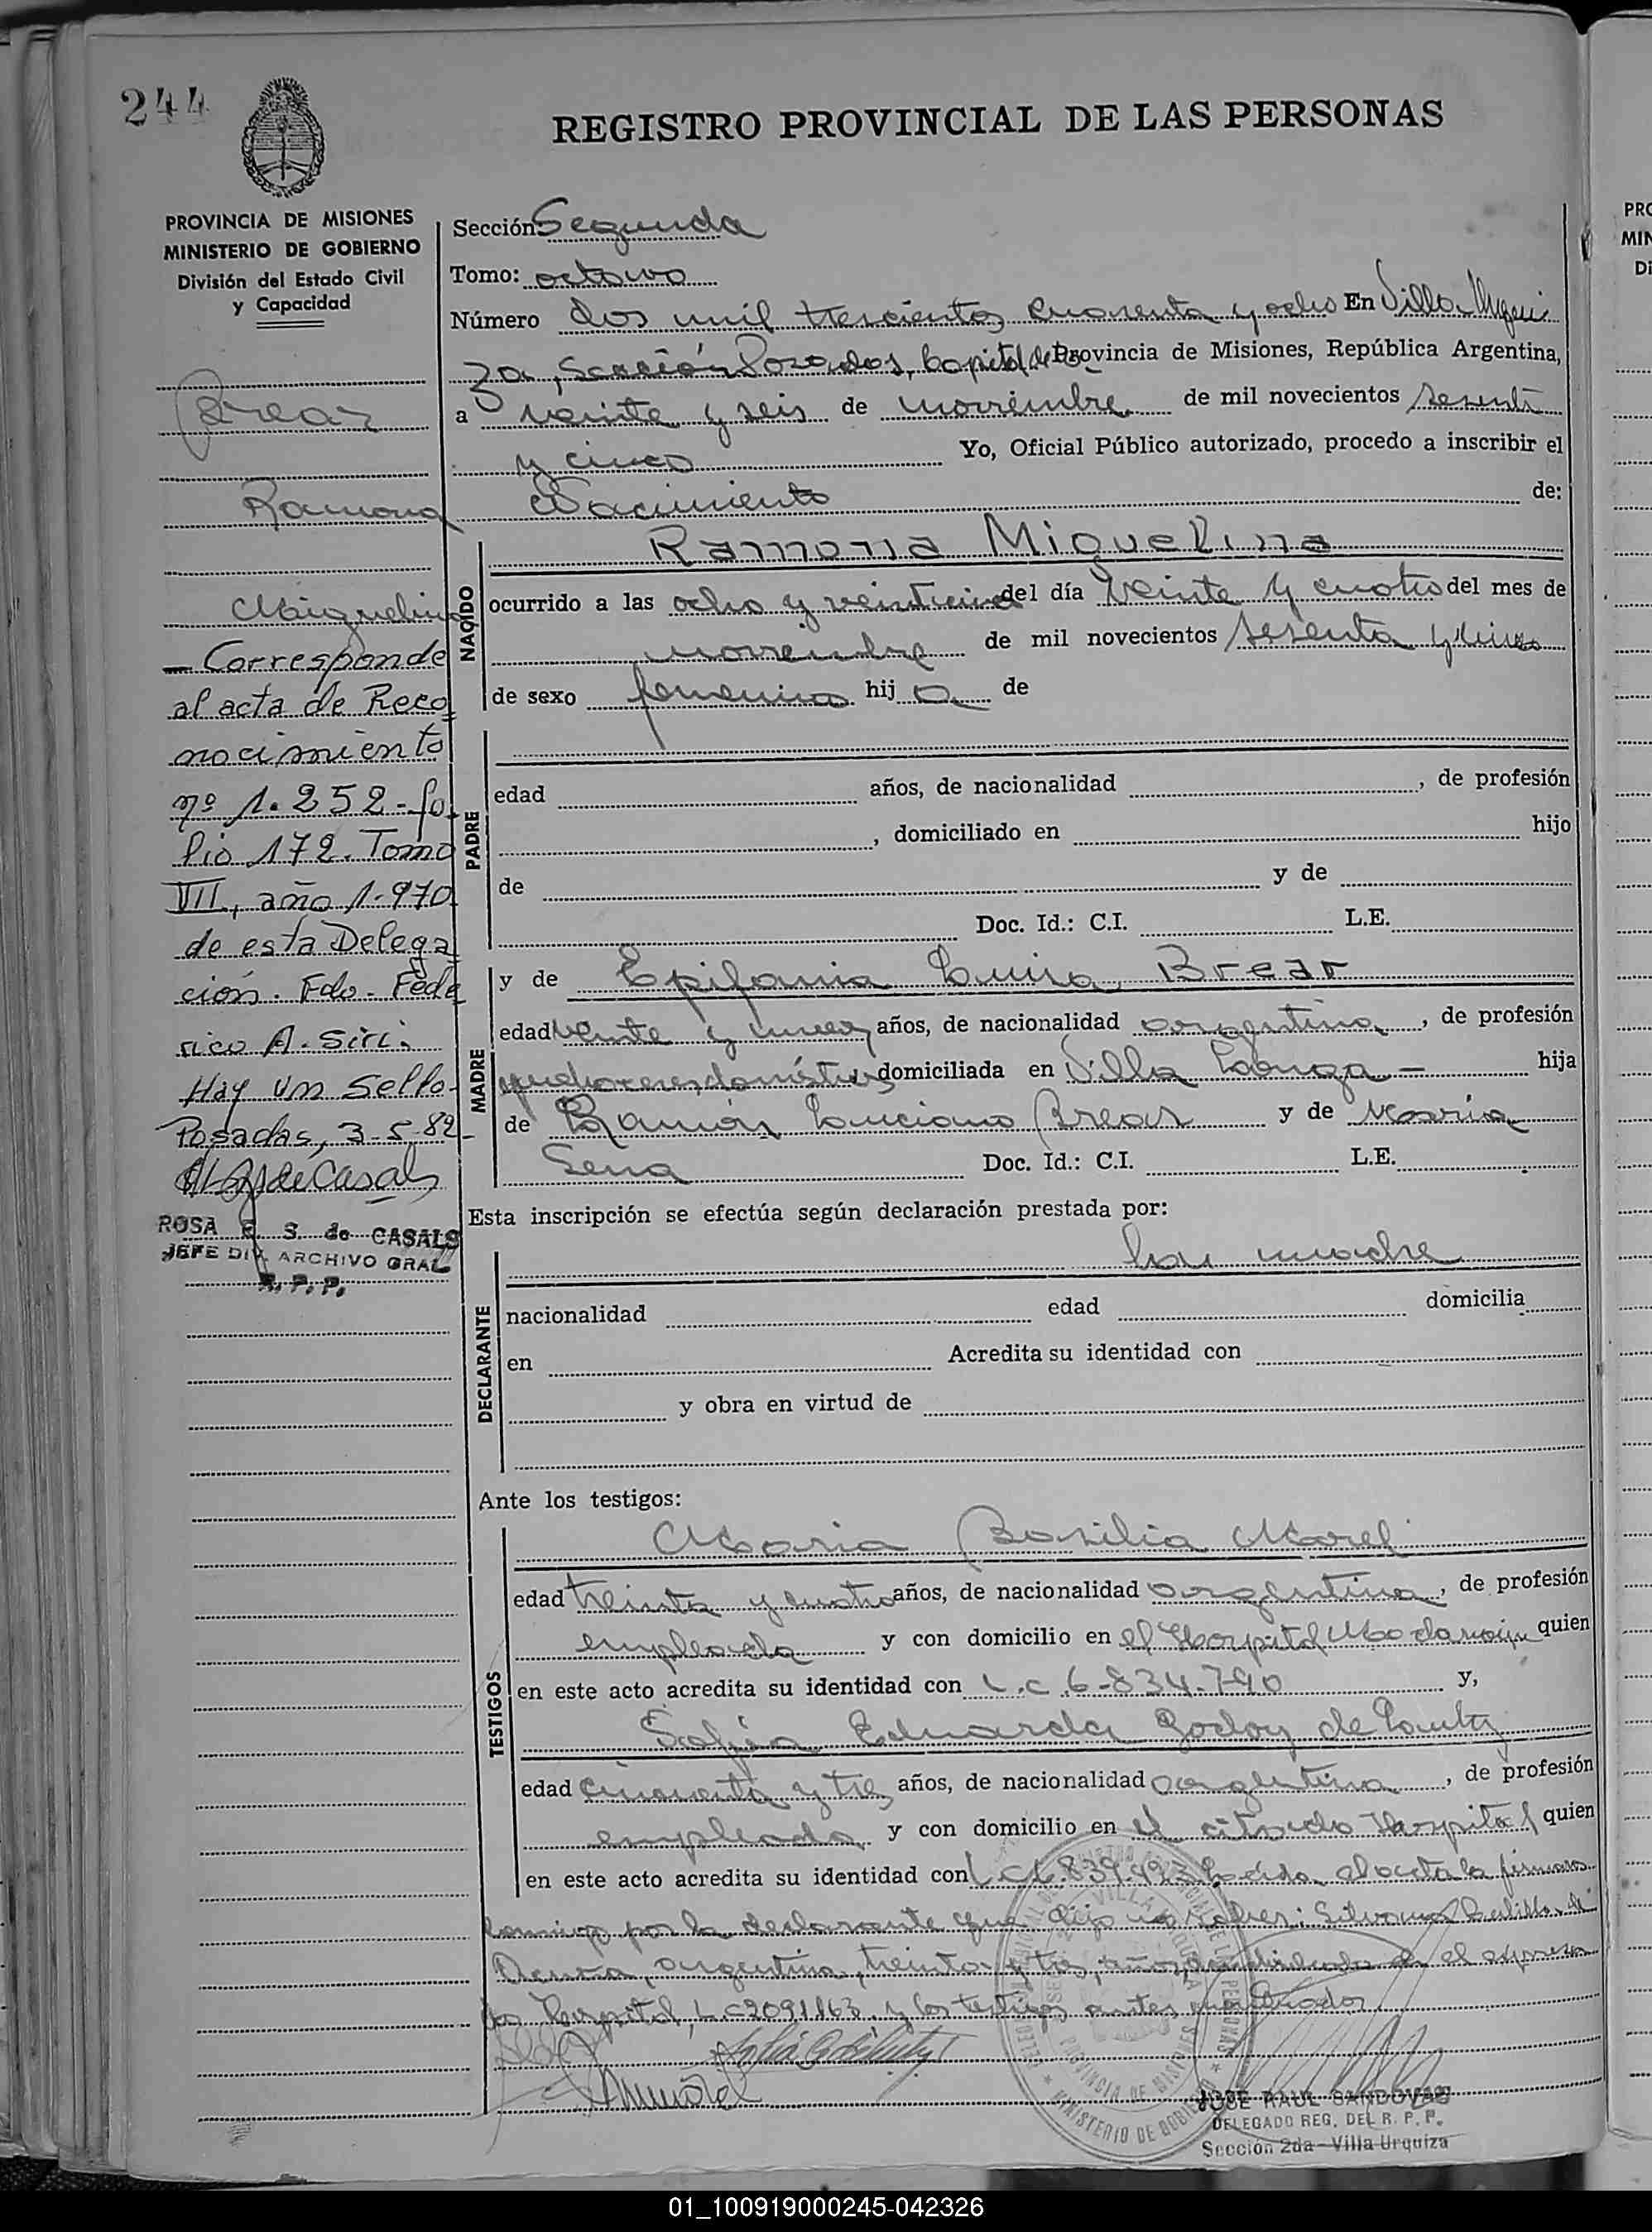 244
REGISTRO PROVINCIAL DE LAS PERSONAS
PROVINCIA DE MISIONES
MINISTERIO DE GOBIERNO
División del Estado Civil
y Capacidad
Brear
Ramona
Miguelina
— Corresponde
al acta de Reco
nocimiento
nº 1.252 - fo
lio 172. Tomo
VII, año 1.970
de esta Delega
ción. Fdo. Fede
rico A. Siri.
Hay un sello.
Posadas, 3-5-82
ROSA E. S. de CASALS
JEFE DIV. ARCHIVO GRAL
R. P. P.
Sección: Segunda
Tomo: octavo
Número dos mil trescientos cuarenta y ocho En Villa Urqui
za, Sección Posadas, Capital de Provincia de Misiones, República Argentina,
a veinte y seis de noviembre de mil novecientos sesenta
y cinco Yo, Oficial Público autorizado, procedo a inscribir el
Nacimiento de:
NACIDO
Ramona Miguelina
ocurrido a las ocho y veinticinco del día veinte y cuatro del mes de
noviembre de mil novecientos sesenta y cinco
de sexo femenino hija de
PADRE
edad años, de nacionalidad , de profesión
, domiciliado en hijo
de y de
Doc. Id.: C.I. L.E.
MADRE
y de Epifania Luisa, Brear
edad veinte y nueve años, de nacionalidad argentina, de profesión
quehaceres domésticos domiciliada en Villa Lanza — hija
de Ramón Luciano Brear y de María
Sena Doc. Id.: C.I. L.E.
Esta inscripción se efectúa según declaración prestada por:
DECLARANTE
La madre
nacionalidad edad domicilia
en Acredita su identidad con
y obra en virtud de
Ante los testigos:
TESTIGOS
Maria Basilia Morel
edad treinta y cuatro años, de nacionalidad argentina, de profesión
empleada y con domicilio en el Hospital Madariaga quien
en este acto acredita su identidad con L.C 6.834.790 y,
Sofia Eduarda Godoy de
edad cincuenta y tres años, de nacionalidad argentina, de profesión
empleada y con domicilio en el citado Hospital quien
en este acto acredita su identidad con Leída el acta la firman
conmigo por la declarante que dijo no saber: Silvana de
argentina, treinta y tres años, domiciliada en el expresa
do Hospital, L.C 2091163 y los testigos antes mencionados
JOSE RAUL SANDOVAL
DELEGADO REG. DEL R. P. P.
Sección 2da - Villa Urquiza
PRO
MIN
Di
01_100919000245-042326